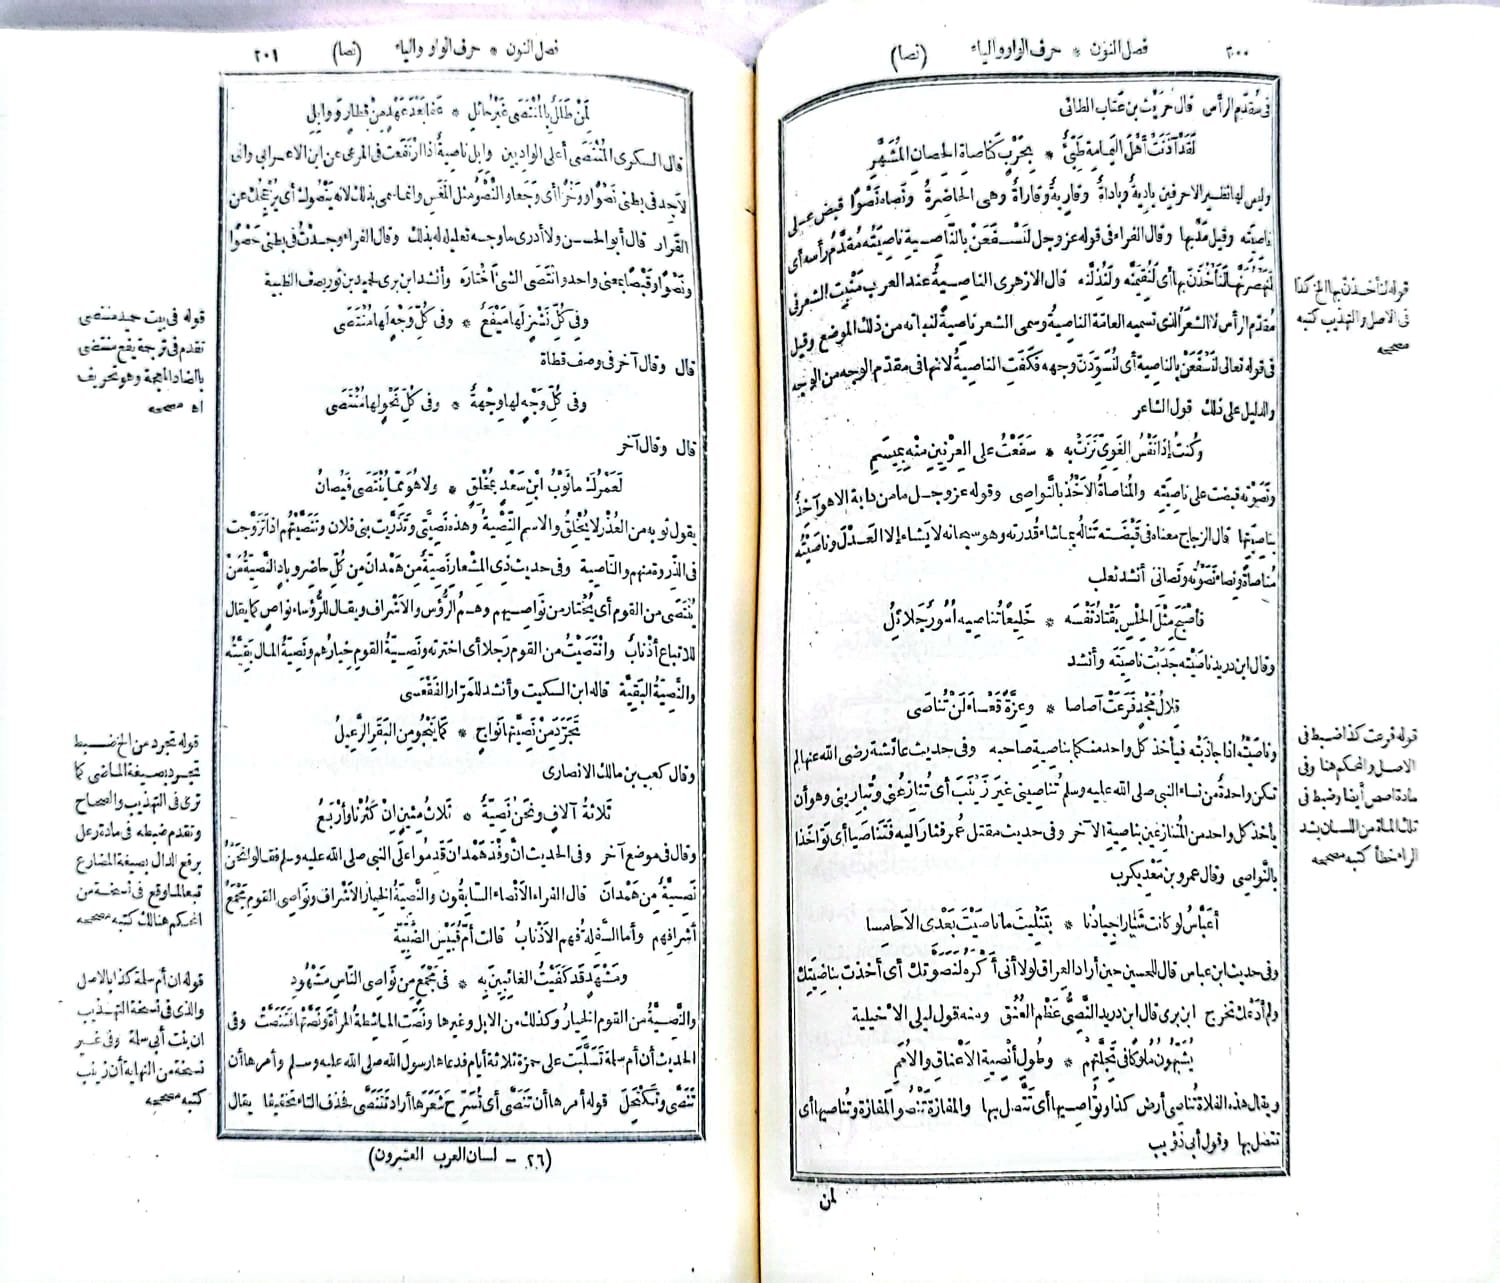 ٢٠٠ فصل النون * حرف الواو والياء (نصا)
فى مُقَدَّم الرأس قال حُرَيْث بن عَتَّاب الطائى
لَقَدْ آذَنَتْ أَهْلَ اليَمامةِ طَيِّئٌ * بِحَرْبٍ كَناصاةِ الحِصانِ المُشَهَّرِ
وليس لها نظير الا حرفين بادِيةٌ وباداةٌ وقارِيةٌ وقاراةٌ وهى الحاضِرةُ ونَصاه نَصْوًا قبض على
ناصِيَتِه وقيل مَدَّ بها وقال الفراء فى قوله عز وجل لَنَسْفَعَنْ بالنَّاصِيةِ ناصِيَتُه مُقَدَّمُ رأسه أى
لَنَهْصُرَنَّها لَنَأْخُذَنَّ بها أى لَنُقِيمَنَّه ولَنُذِلَّنَّه قال الازهرى الناصِيةُ عند العرب مَنْبِتُ الشعر فى
مُقدَّم الرأس لا الشعَرُ الذى تسميه العامّة الناصِيةَ وسمى الشعر ناصِيةً لنباته من ذلك الموضع وقيل
فى قوله تعالى لَنَسْفَعَنْ بالناصية أى لَنُسَوِّدَنْ وجهه فكَفَتِ الناصيةُ لانها فى مقدّم الوجه من الوجه
والدليل على ذلك قول الشاعر
وكُنتُ إذا نَفْسُ الغَوِيِّ نَزَتْ به * سَفَعْتُ على العِرْنِينِ منْه بِمِيسَمِ
ونَصَوْته قبضت على ناصِيَتِه والمُناصاةُ الأَخْذُ بالنَّواصى وقوله عز وجل ما من دابة الا هو آخذٌ
بناصِيَتِها قال الزجاج معناه فى قَبْضَته تَنالُه بما شاء قُدرته وهو سبحانه لا يَشاء إلا العَدْلَ وناصَيْتُه
مُناصاةً ونِصاء نَصَوْتُه ونَصانى أنشد ثعلب
فأَصْبَحَ مِثْلَ الحِلْسِ يَقْتادُ نَفْسَه * خَلِيعًا تُناصِيه أُمُورٌ جَلائِلُ
وقال ابن دريد ناصَيْتُه جَذَبْت ناصِيَتَه وأنشد
قِلالُ مَجْدٍ فَرَعَتْ آصاصا * وعِزَّةً قَعْساءَ لَنْ تُناصَى
وناصَيْتُه اذا جاذَبْته فيأخذ كل واحد منكما بناصِيةِ صاحبه وفى حديث عائشة رضى الله عنها لم
تكن واحدةٌ من نساء النبى صلى الله عليه وسلم تُناصِينى غيرَ زَيْنَبَ أى تُنازِعُنى وتُبارِينى وهو أن
يأخذ كل واحد من المُتنازِعَيْن بناصِيةِ الآخر وفى حديث مقتل عُمر فثار اليه فتَناصَيا أى تَواخَذا
بالنَّواصِى وقال عمرو بن مَعْدِيكرب
أَعَبَّاسُ لو كانت شَيَارًا جِيادُنا * بتَثْلِيثَ ما ناصَيْتَ بَعْدِى الاَحامسا
وفى حديث ابن عباس قال للحسين حين أراد العِراق لولا أنى أَكْرَهُ لنَصَوْتك أى أَخذت بناصِيَتِك
ولم أَدَعْك تخرج ابن برى قال ابن دريد النَّصِىُّ عَظْم العُنُق ومنه قول ليلى الاخيلية
يُشَبَّهُونَ مُلوكًا فى تَجِلَّتِهِمْ * وطُولِ أَنْصِيةِ الاَعْناقِ والأُمَمِ
ويقال هذه الفلاة تُناصِى أرض كذا وتُواصِيها أى تَتَّصل بها والمفازَة تَنْصُو المَفازة وتُناصِيها أى
تتصل بها وقول أبى ذؤيب
لمن
قوله لنأخذنّ بها الخ كذا
فى الاصل والتهذيب كتبه
مصححه
قوله فرعت كذا ضبط فى
الاصل والمحكم هنا وفى
مادة اصص أيضا وضبط فى
تلك المادة من اللسان بشد
الراء خطأ كتبه مصححه
فصل النون * حرف الواو والياء (نصا) ٢٠١
لِمَنْ طَلَلٌ بالمُنْتَصَى غَيْرُ حائلِ * عَفا بَعْدَ عَهْدٍ مِنْ قِطارٍ ووابِلِ
قال السكرى المُنْتَصَى أعلى الوادِيين وابل ناصِيةٌ اذا ارْتَفَعت فى المرعى عن ابن الاعرابى وانى
لاَجِد فى بطنى نَصْوًا ووَخْزًا أى وَجَعا والنَّصْوُ مثل المَغَس وانما سمى بذلك لانه يَنْصُوك أى يُزْعِجُك عن
القَرار قال أبو الحسن ولا أدرى ما وجه تعليله له بذلك وقال الفراء وجدْتُ فى بطنى حَصْوًا
ونَصْوًا وقَبْصًا بمعنى واحد وانتَصَى الشئَ اخْتارَه وأنشد ابن برى لحميد بن ثور يصف الظبية
وفى كلِّ نَشْزٍ لها مَيْفَعٌ * وفى كلِّ وَجْهٍ لها مُنْتَصَى
قال وقال آخر فى وصف قطاة
وفى كلِّ وَجْهٍ لها وِجْهةٌ * وفى كلِّ نَحْوٍ لها مُنْتَصَى
قال وقال آخر
لَعَمْرُكَ ما ثَوْبُ ابنِ سَعْدٍ بمُخْلِقٍ * ولا هُوَ مِمّا يُنْتَصَى فيُصانُ
يقول ثوبه من العُذْر لا يُخْلِقُ والاسم النِّصْيةُ وهذه نَصِيَّتى وتَذَرَّيت بنى فلان وتَنَصَّيْتُهم اذا تَزَوَّجت
فى الذِّروة منهم والنَّاصِية وفى حديث ذِى المِشْعارِ نَصِيّةٌ من هَمْدان من كلِّ حاضِر وبادٍ النَّصِيّةُ مَنْ
يُنْتَصَى من القوم أى يُخْتار من نَواصِيهم وهم الرُّؤوس والاَشْراف ويقال للرُّؤساء نَواصٍ كما يقال
للاتباع أَذْنابٌ وانْتَصَيْتُ من القوم رَجلا أى اخترته ونَصِيّةُ القومِ خِيارُهم ونَصِيّةُ المال بَقِيَّتُه
والنَّصِيّةُ البَقِيّة قاله ابن السكيت وأنشد للمَرّار الفَقْعَسى
تَجَرَّدَ مِنْ نَصِيَّتِها نَواجٍ * كما يَنْجُو من البَقَرِ الرَّعِيلُ
وقال كعب بن مالك الانصارى
ثَلاثةُ آلافٍ ونحنُ نَصِيّةٌ * ثلاثُ مِئِينٍ انْ كَثُرْنا وأَرْبَعُ
وقال فى موضع آخر وفى الحديث انّ وَفْدَ هَمْدانَ قَدِمُوا على النبى صلى الله عليه وسلم فقالوا نَحْنُ
نَصِيّةٌ من هَمْدانَ قال الفراء الاَنْصاء السابِقُونَ والنَّصِيّةُ الخِيار الاَشْراف ونَواصِى القوم مَجْمَعُ
أشرافِهم وأما السَّفِلة فهم الاَذْنابُ قالت أُمّ قُبَيْسٍ الضَّبِّيَّة
ومَشْهَدٍ قد كَفَيْتُ الغائِبِينَ بِه * فى مَجْمَعٍ من نَواصِى النّاسِ مَشْهُودِ
والنَّصِيّةُ من القوم الخِيارُ وكذلك من الابل وغيرها ونَصَتِ الماشِطةُ المرأةَ ونَصَّتْها فتَنَصَّتْ وفى
الحديث أن أم سلمة تَسَلَّبَت على حمزة ثلاثة أيام فدعاها رسول الله صلى الله عليه وسلم وأمرها أن
تَنَصَّى وتَكْتَحِلَ قوله أمرها أن تَنَصَّى أى تُسَرِّح شَعَرَها أراد تَتَنَصَّى فحذف التاء تخفيفا يقال
(٢٦ - لسان العرب العشرون)
قوله فى بيت حميد منتصى
تقدم فى ترجمة يفع منتضى
بالضاد المعجمة وهو تحريف
اه مصححه
قوله تجرد من الخ ضبط
تجرد بصيغة الماضى كما
ترى فى التهذيب والصحاح
وتقدم ضبطه فى مادة رعل
برفع الدال بصيغة المضارع
تبعا لما وقع فى نسخة من
المحكم هنالك كتبه مصححه
قوله ان أم سلمة كذا بالاصل
والذى فى نسخة التهذيب
ان بنت أبى سلمة وفى غير
نسخة من النهاية أن زينب
كتبه مصححه